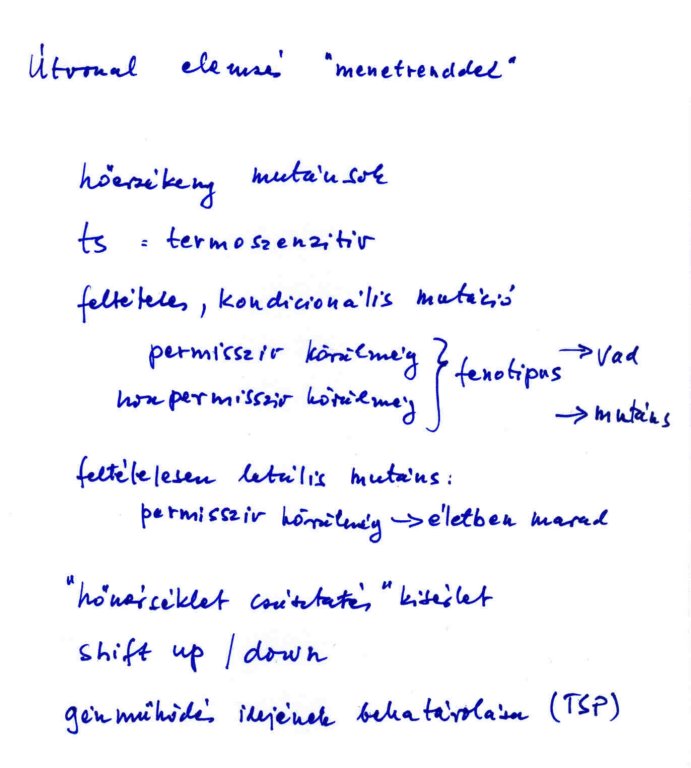 Útvonal elemzés "menetrenddel"
hőérzékeny mutánsok
ts = termoszenzitiv
feltételes, kondicionális mutáció
permissziv körülmény } fenotipus → vad
nonpermissziv körülmény → mutáns
feltételesen letális mutáns:
permissziv körülmény → életben marad
"hőmérséklet csúsztatás" kisérlet
shift up / down
génműködés idejének behatárolása (TSP)